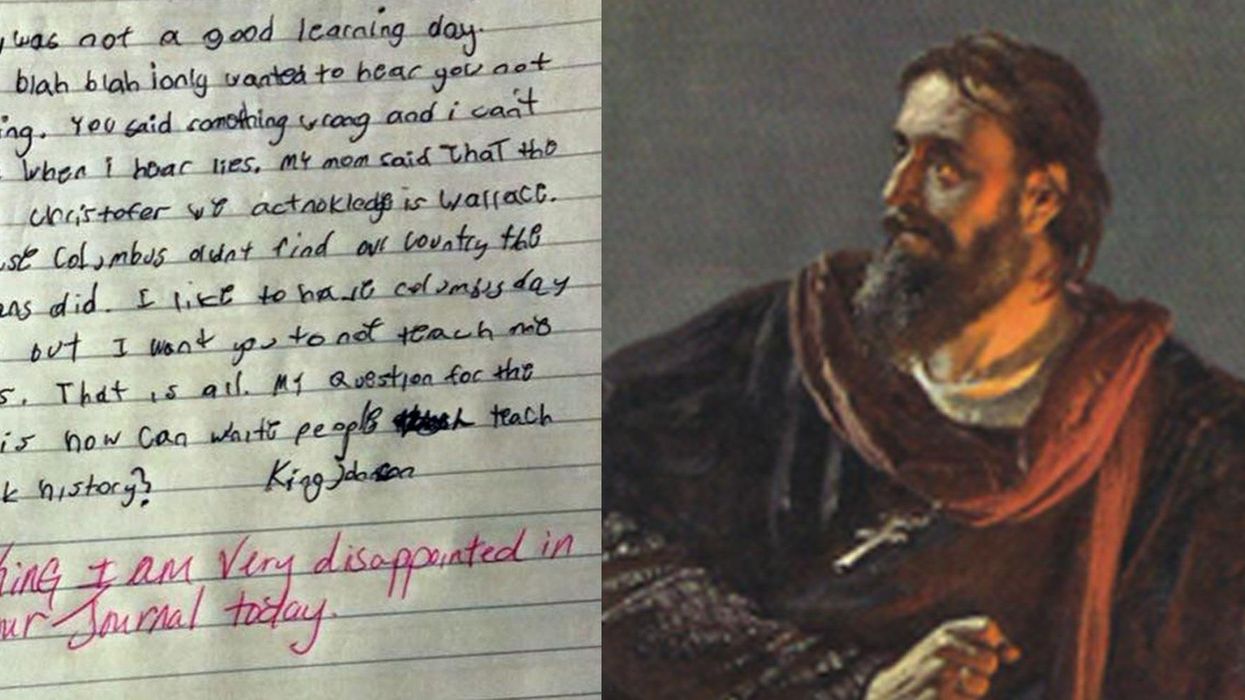 was not a good learning day.
blah blah ionly wanted to hear you not
ing. You said something wrong and i can't
when i hear lies. My mom said That the
christofer we actnokledje is Wallace.
se Columbus didnt find our country the
ans did. I like to have columbus day
but I want you to not teach me
s. That is all. My question for the
is how can white people teach
k history?   King Johnson
king I am very disappointed in
ur Journal today.